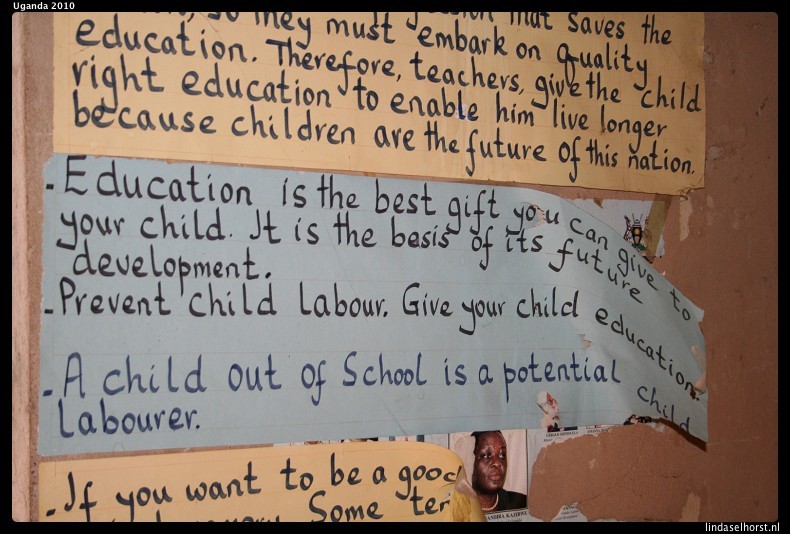 Uganda 2010
so they must embark on quality
education. Therefore, teachers, give the child
right education to enable him live longer
because children are the future of this nation.
- Education is the best gift you can give to
your child. It is the basis of its future
development.
- Prevent child labour. Give your child education.
- A child out of School is a potential child
labourer.
- If you want to be a good
Some
lindaselhorst.nl